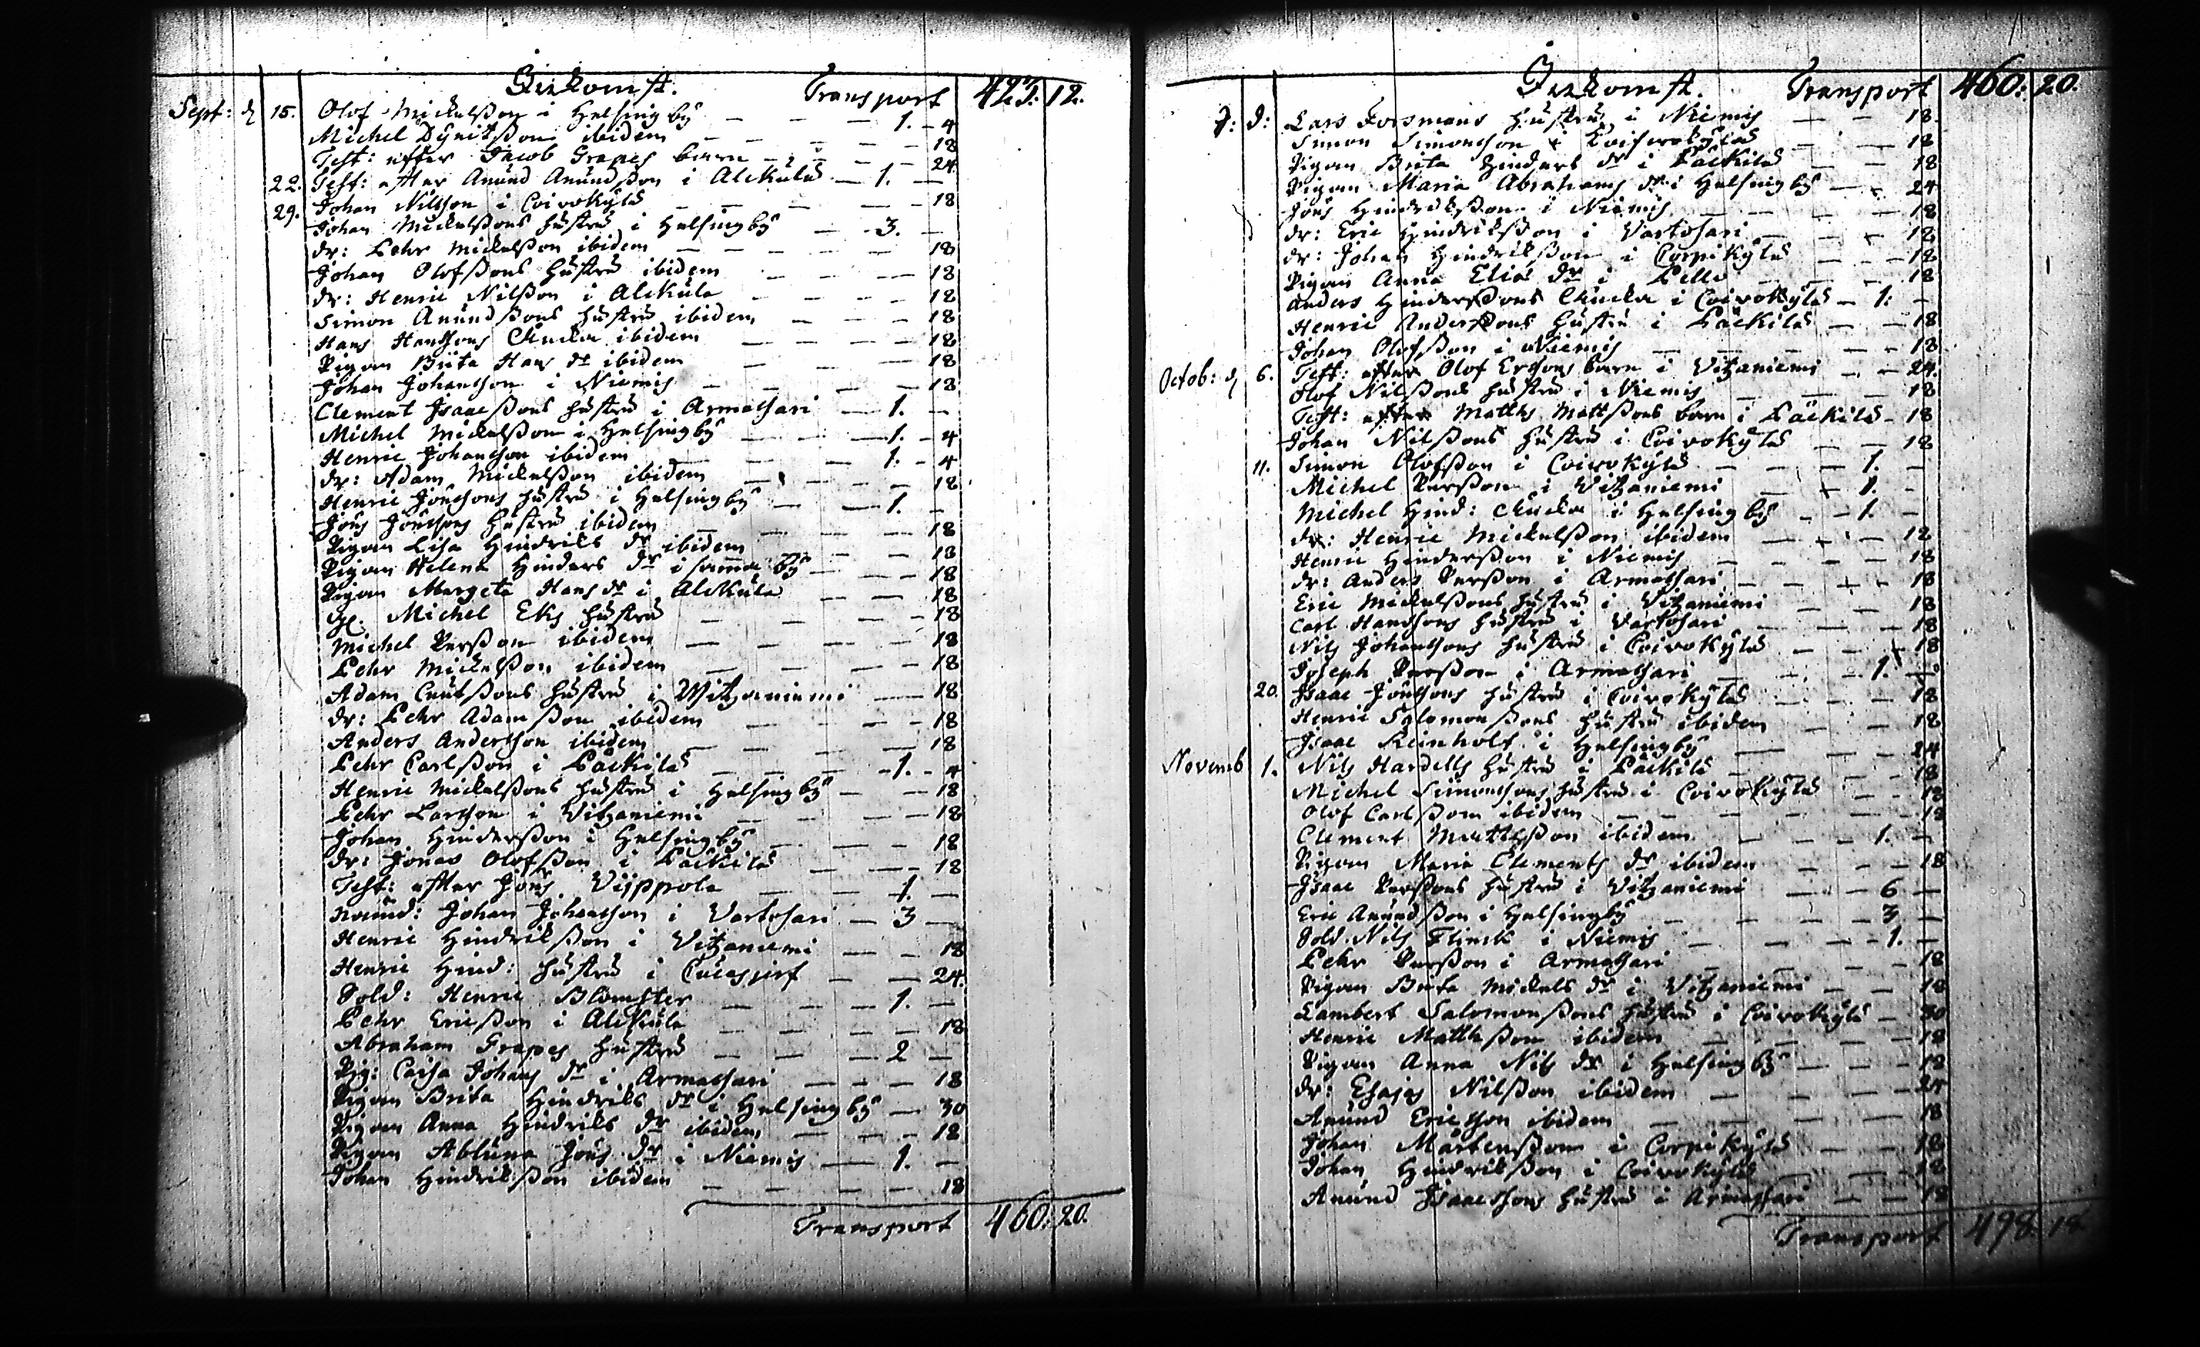 Inkomst. Transport 423: 12.
Sept: d 15. Olof Mickelsson i Helsingby — — 1. - 4
Michel ibidem — — — 18
Test: efter Jacob Grapes barn — — — 24
22. Test: efter Anund Anundsson i Alckula — 1. —
29. Johan Nilsson i Coivokylä — — — 18
Johan Mickelssons hustru i Helsingby — 3. —
dr: Pehr Mickelsson ibidem — — — 18
Johan Olofssons hustru ibidem — — — 18
dr: Henric Nilsson i Alckula — — — 18
Simon Anundssons hustru ibidem — — — 18
Hans Hanssons Encka ibidem — — — 18
Pigan Brita Hans dr ibidem — — — 18
Johan Johansson i Niemis — — — 18
Clement Isaacssons hustru i Armassari — 1. —
Michel Mickelsson i Helsingby — — 1. - 4
Henric Johansson ibidem — — 1. - 4
dr: Adam Mickelsson ibidem — — — 18
Henric Jönssons hustru i Helsingby — 1. —
Jöns Jönssons hustru ibidem — — — 18
Pigan Lisa Hindriks dr ibidem — — — 18
Pigan Helena Hinders dr i samma By — — 18
Pigan Margeta Hans dr i Alckula — — 18
Michel Eks hustru — — — 18
Michel Persson ibidem — — — 18
Pehr Mickelsson ibidem — — — 18
Adam Cnutssons hustru i Witzaniemi — — 18
dr: Pehr Adamsson ibidem — — — 18
Anders Andersson ibidem — — — 18
Pehr Carlsson i Päckilä — — 1. - 4
Henric Mickelssons hustru i Helsingby — — 18
Pehr Larsson i Vitzaniemi — — — 18
Johan Hindersson i Helsingby — — — 18
dr: Jonas Olofsson i Päckilä — — — 18
Test: efter Jöns Vijppola — — 1. —
Johan Johansson i Vartosari — 3 —
Henric Hindriksson i Vitzaniemi — — 18
Henric Hind: hustru i — — 24.
Sold: Henric Blomster — — 1. —
Pehr Ericsson i Alckula — — — 18
Abraham Grapes hustru — — 2 —
Pig: Caisa Johans dr i Armassari — — — 18
Pigan Brita Hindriks dr i Helsingby — 30
Pigan Anna Hindriks dr ibidem — — — 18
Pigan Abluna Jöns dr i Niemis — 1. —
Johan Hindriksson ibidem — — — 18
Transport 460: 20.
Inkomst. Transport 460: 20.
d: d: Lars Forsmans hustru i Niemis — — 18.
Simon Simonsson i Coivokylä — — 18
Pigan Brita Hinders dr i Päckilä — — 18
Pigan Maria Abrahams dr i Helsingby — — 24
Jöns Hindriksson i Niemis — — — 18
dr: Eric Hindriksson i Vartosari — — 18
dr: Johan Hindriksson i Corpikylä — — 18
Pigan Anna Elias dr i Pello — — 18
Anders Hinderssons Encka i Coivokylä — 1: —
Henric Anderssons hustru i Päckilä — — 18
Johan Olofsson i Niemis — — — 18
Octob: d 6. Test: efter Olof Erssons barn i Vitzaniemi — — 24.
Olof Nilssons hustru i Niemis — — 18
Test: efter Matths Mattssons barn i Päckilä - 18
Johan Nilssons hustru i Coivokylä — — 18
11. Simon Olofsson i Coivokylä — — 1. —
Michel Persson i Vitzaniemi — 1. —
Michel Hind: Encka i Helsingby — 1. —
dr: Henric Mickelsson ibidem — — 12
Henric Hindersson i Niemis — — — 18
dr: Anders Persson i Armassari — — 18
Eric Mickelssons hustru i Vitzaniemi — — 18
Carl Hanssons hustru i Vartosari — — 18
Nils Johanssons hustru i Coivokylä — — 18
Joseph Persson i Armassari — — 1. —
20. Isaac Jönssons hustru i Coivokylä — — 18
Henric Salomonssons hustru ibidem — — 18
Isaac Reinholt i Helsingby — — — 24
Novemb 1. Nils Hardells hustru i Päckilä — — 18
Michel Simonssons hustru i Coivokylä — — 18
Olof Carlsson ibidem — — — 18
Clement Mattsson ibidem — — 1. —
Pigan Maria Clements dr ibidem — — 18
Isaac Perssons hustru i Vitzaniemi — — 6 —
Eric Anundsson i Helsingby — — 3 —
Sold. Nils Flinck i Niemis — — 1. —
Pehr Persson i Armassari — — — 18
Pigan Brita Mickels dr i Vitzaniemi — — 18
Lambert Salomonssons hustru i Coivokylä — 30
Henric Mattsson ibidem — — — 18
Pigan Anna Nils dr i Helsingby — — 18
dr: Esaias Nilsson ibidem — — — 24
Anund Ericsson ibidem — — — 18
Johan Mårtensson i Corpikylä — — 18
Johan Hindriksson i Coivokylä — — 18
Anund Isaacssons hustru i Armassari — — 18
Transport 498. 18